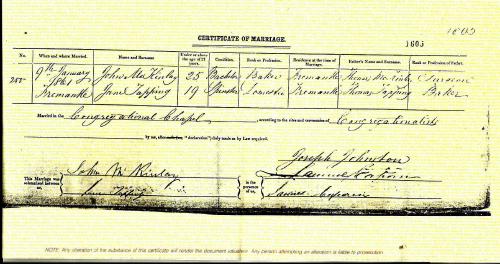 1605
CERTIFICATE OF MARRIAGE.
1605
No. When and where Married. Name and Surname. Under or above the age of 21 years. Condition. Rank or Profession. Residence at the time of Marriage. Father's Name and Surname. Rank or Profession of Father.
9th January 1861 John McKinlay 25 Bachelor Baker Fremantle Thomas McKinlay Surgeon
Fremantle Jane Tapping 19 Spinster Domestic Fremantle Thomas Tapping Baker
Married in the Congregational Chapel according to the rites and ceremonies of Congregationalists
by me, after "declaration" duly made as by Law required.
Joseph Johnston
This Marriage was solemnized between us, John McKinlay in the presence of us, Samuel
James
NOTE: Any alteration of the substance of this certificate will render the document valueless. Any person attempting an alteration is liable to prosecution.